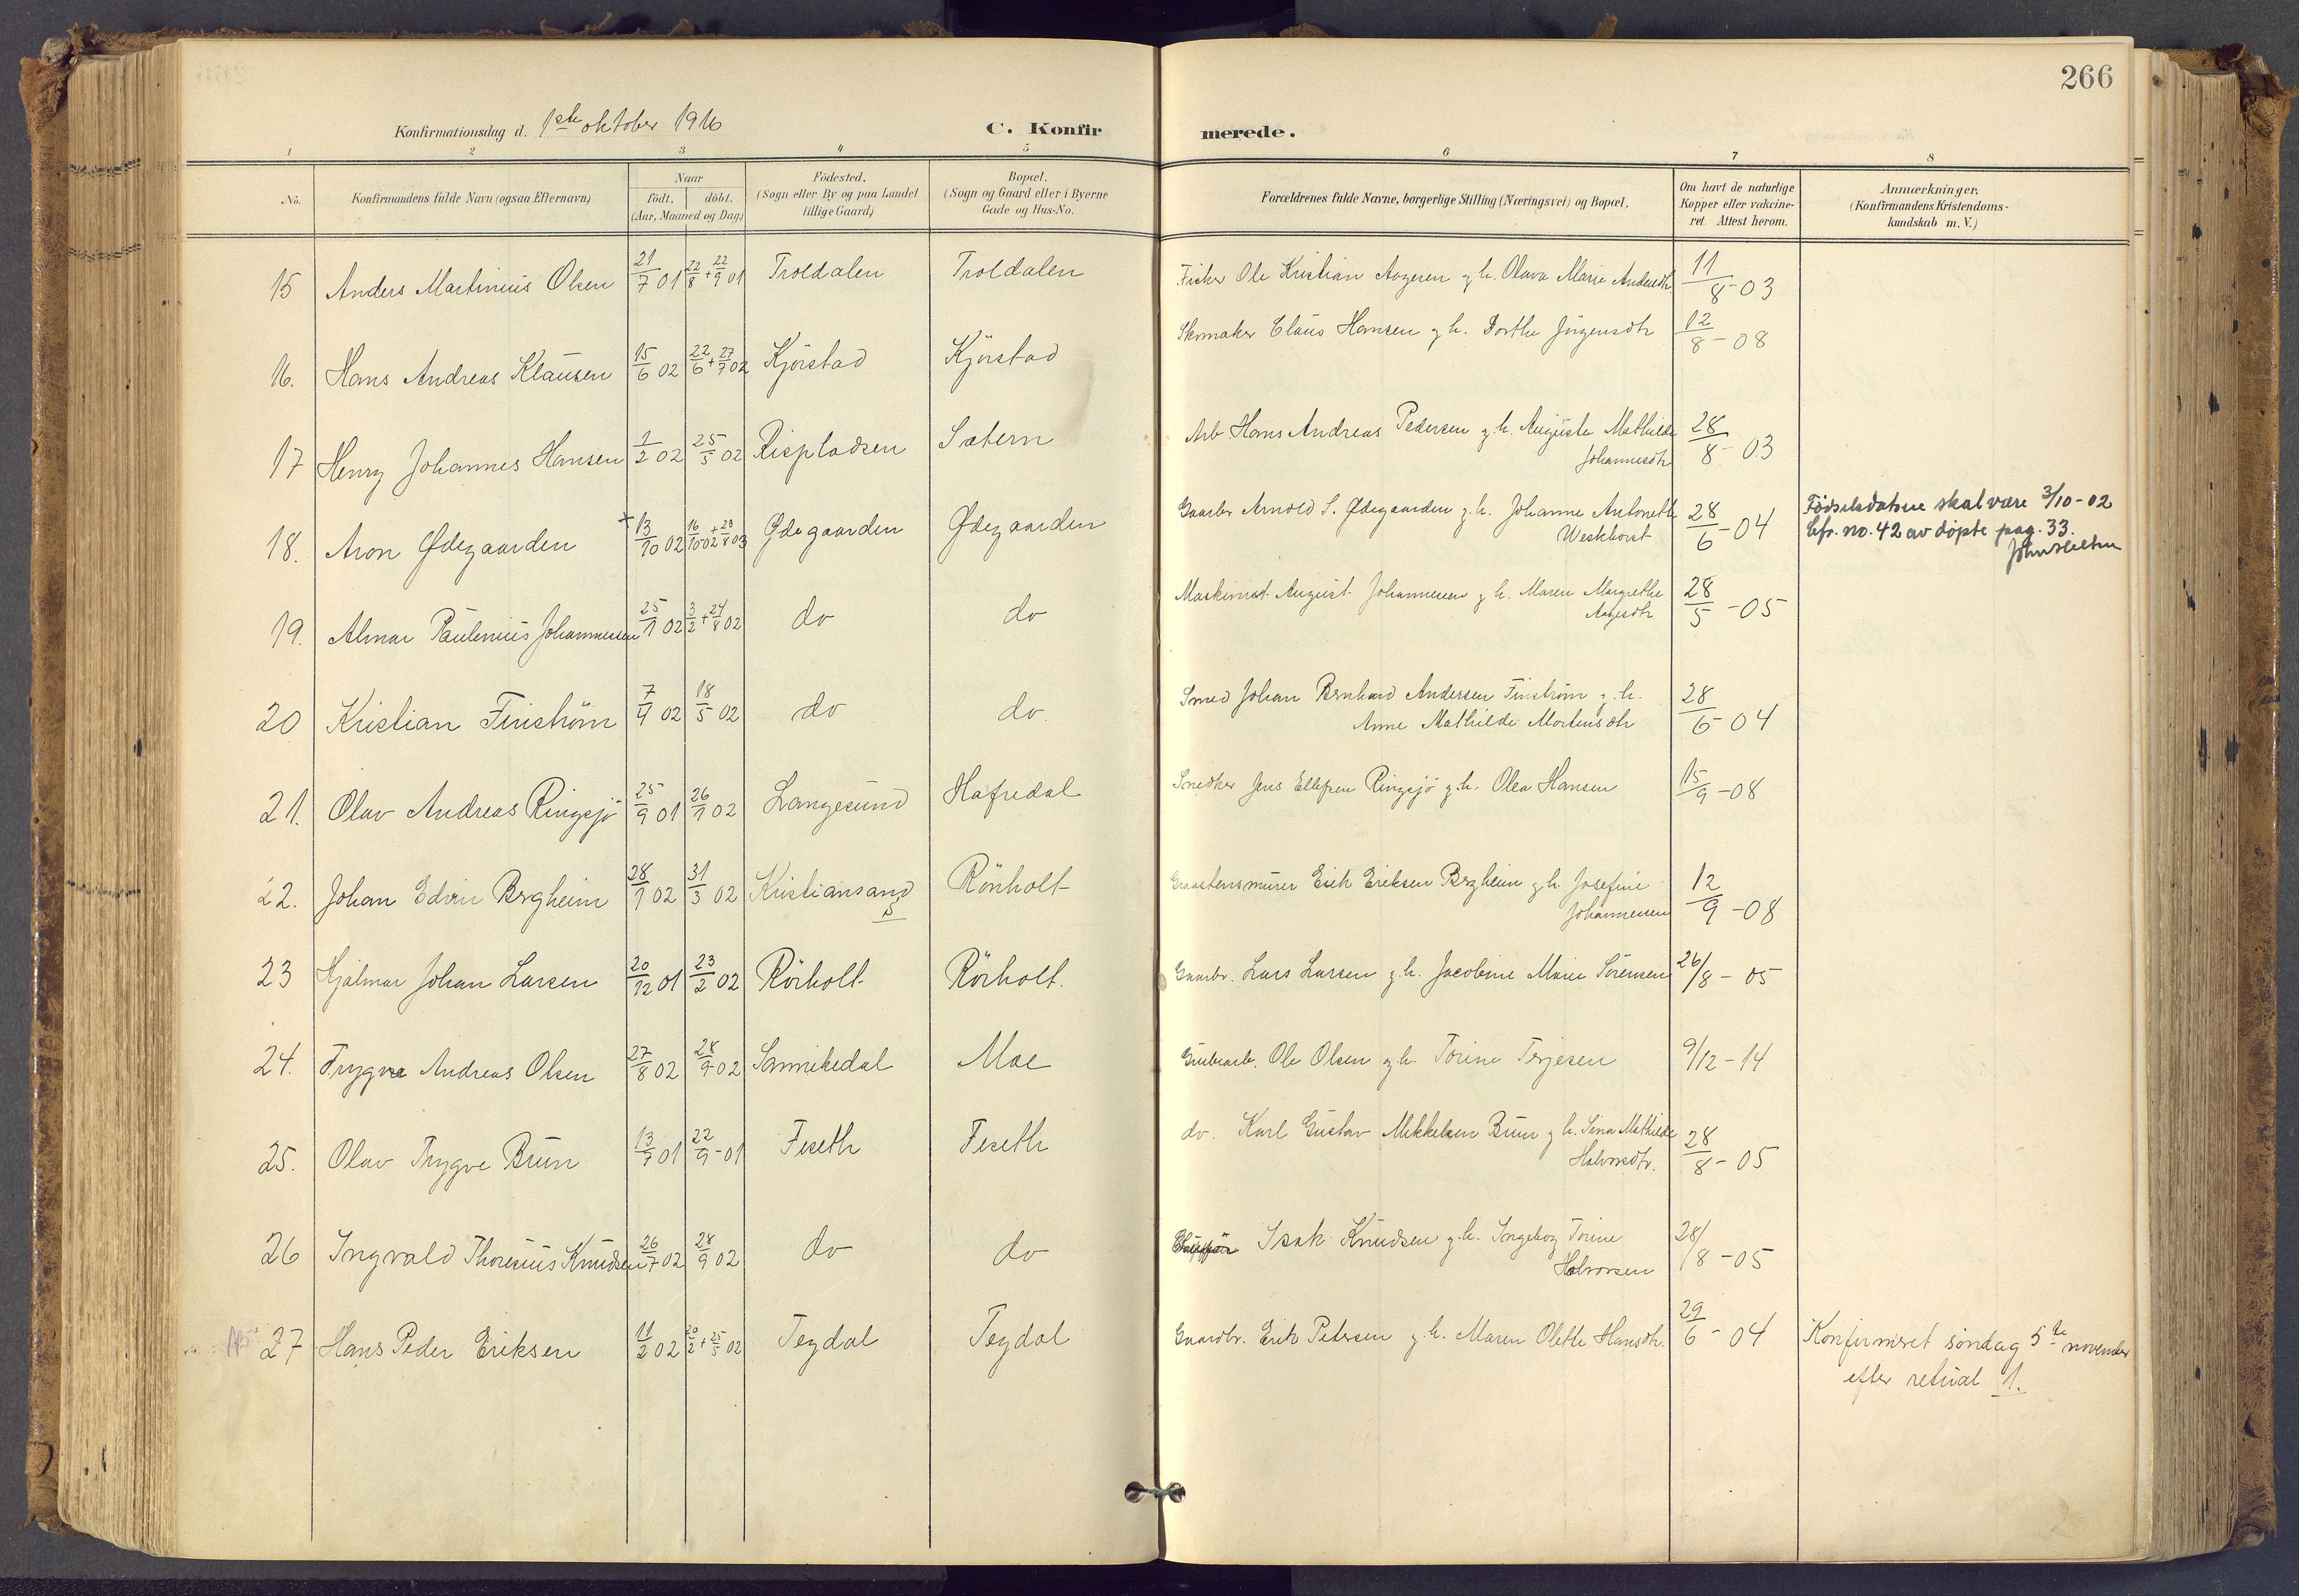 266
Konfirmationsdag d. 1ste oktober 1916 C. Konfir merede.
1 2 3 4 5 6 7 8
No. Konfirmandens fulde Navn (ogsaa Efternavn) Naar födt. döbt. (Aar, Maaned og Dag) Födested. (Sogn eller By og paa Landet tillige Gaard) Bopæl. (Sogn og Gaard eller i Byerne Gade og Hus-No. Forældrenes fulde Navne, borgerlige Stilling (Næringsvei) og Bopæl. Om havt de naturlige Kopper eller vakcineret. Attest herom. Anmærkninger. (Konfirmandens Kristendomskundskab m. V.)
15 Anders Martinius Olsen 21/7 01 22/8 + 22/9 01 Troldalen Troldalen Fisker Ole Kristian Aagesen g. h. Olava Marie Andersdtr 11/8 - 03
16. Hans Andreas Klausen 15/6 02 22/6 + 27/7 02 Kjörstad Kjörstad Skomaker Claus Hansen g. h. Dorthe Jörgensdtr 12/8 - 08
17 Henry Johannes Hansen 1/2 02 25/5 02 Rispladsen Sætern Arb. Hans Andreas Pedersen g. h. Auguste Mathilde
Johannesdtr 28/8 - 03
18. Aron Ødegaarden + 13/10 02 16/10 02 + 23/8 03 Ødegaarden Ødegaarden Gaardbr Arnold S. Ødegaarden g. h. Johanne Antonette
28/6 - 04 Födselsdatoen skal være 3/10 - 02
Cfr. no. 42 av döpte pag. 33.
19. Almar Paulinius Johannessen 25/1 02 3/2 + 24/8 02 do do Maskinist August Johannessen g. h. Maren Margrethe
Aagesdtr 28/5 - 05
20 Kristian Finström 7/4 02 18/5 02 do do. Smed Johan Bernhard Andersen Finström g. h.
Anne Mathilde Mortensdtr 28/6 - 04
21. Olav Andreas Ringsjö 25/9 01 26/1 02 Langesund Hafredal Snedker Jens Ellefsen Ringsjö g. h. Olea Hansen 15/9 - 08
22. Johan Edvin Bergheim 28/1 02 31/3 02 Kristiansand S Rönholt Graastensmurer Erik Eriksen Bergheim g. h. Josefine
Johannessen 12/9 - 08
23 Hjalmar Johan Larsen 20/12 01 23/2 02 Rörholt Rörholt. Gaardbr. Lars Larsen g. h. Jacobine Marie Sörensen 26/8 - 05
24. Trygve Andreas Olsen 27/8 02 28/9 02 Sannikedal Moe Grubearb. Ole Olsen g. h. Torine Terjesen 9/12 - 14
25. Olav Trygve Brun 13/7 01 22/9 - 01 Feseth Feseth do. Karl Gustav Mikkelsen Brun g. h. Sina Mathilde
Halvorsdtr. 28/8 - 05
26 Ingvald Thoresius Knudsen 26/7 02 28/9 02 do do Isak Knudsen g. h. Ingeborg Torine
Halvorsen 28/8 - 05
27 Hans Peder Eriksen 11/2 02 20/2 + 25/5 02 Tegdal Tegdal Gaardbr. Erik Petersen g. h. Maren Olette Hansdtr. 29/6 - 04 Konfirmeret söndag 5te november
efter retual 1.